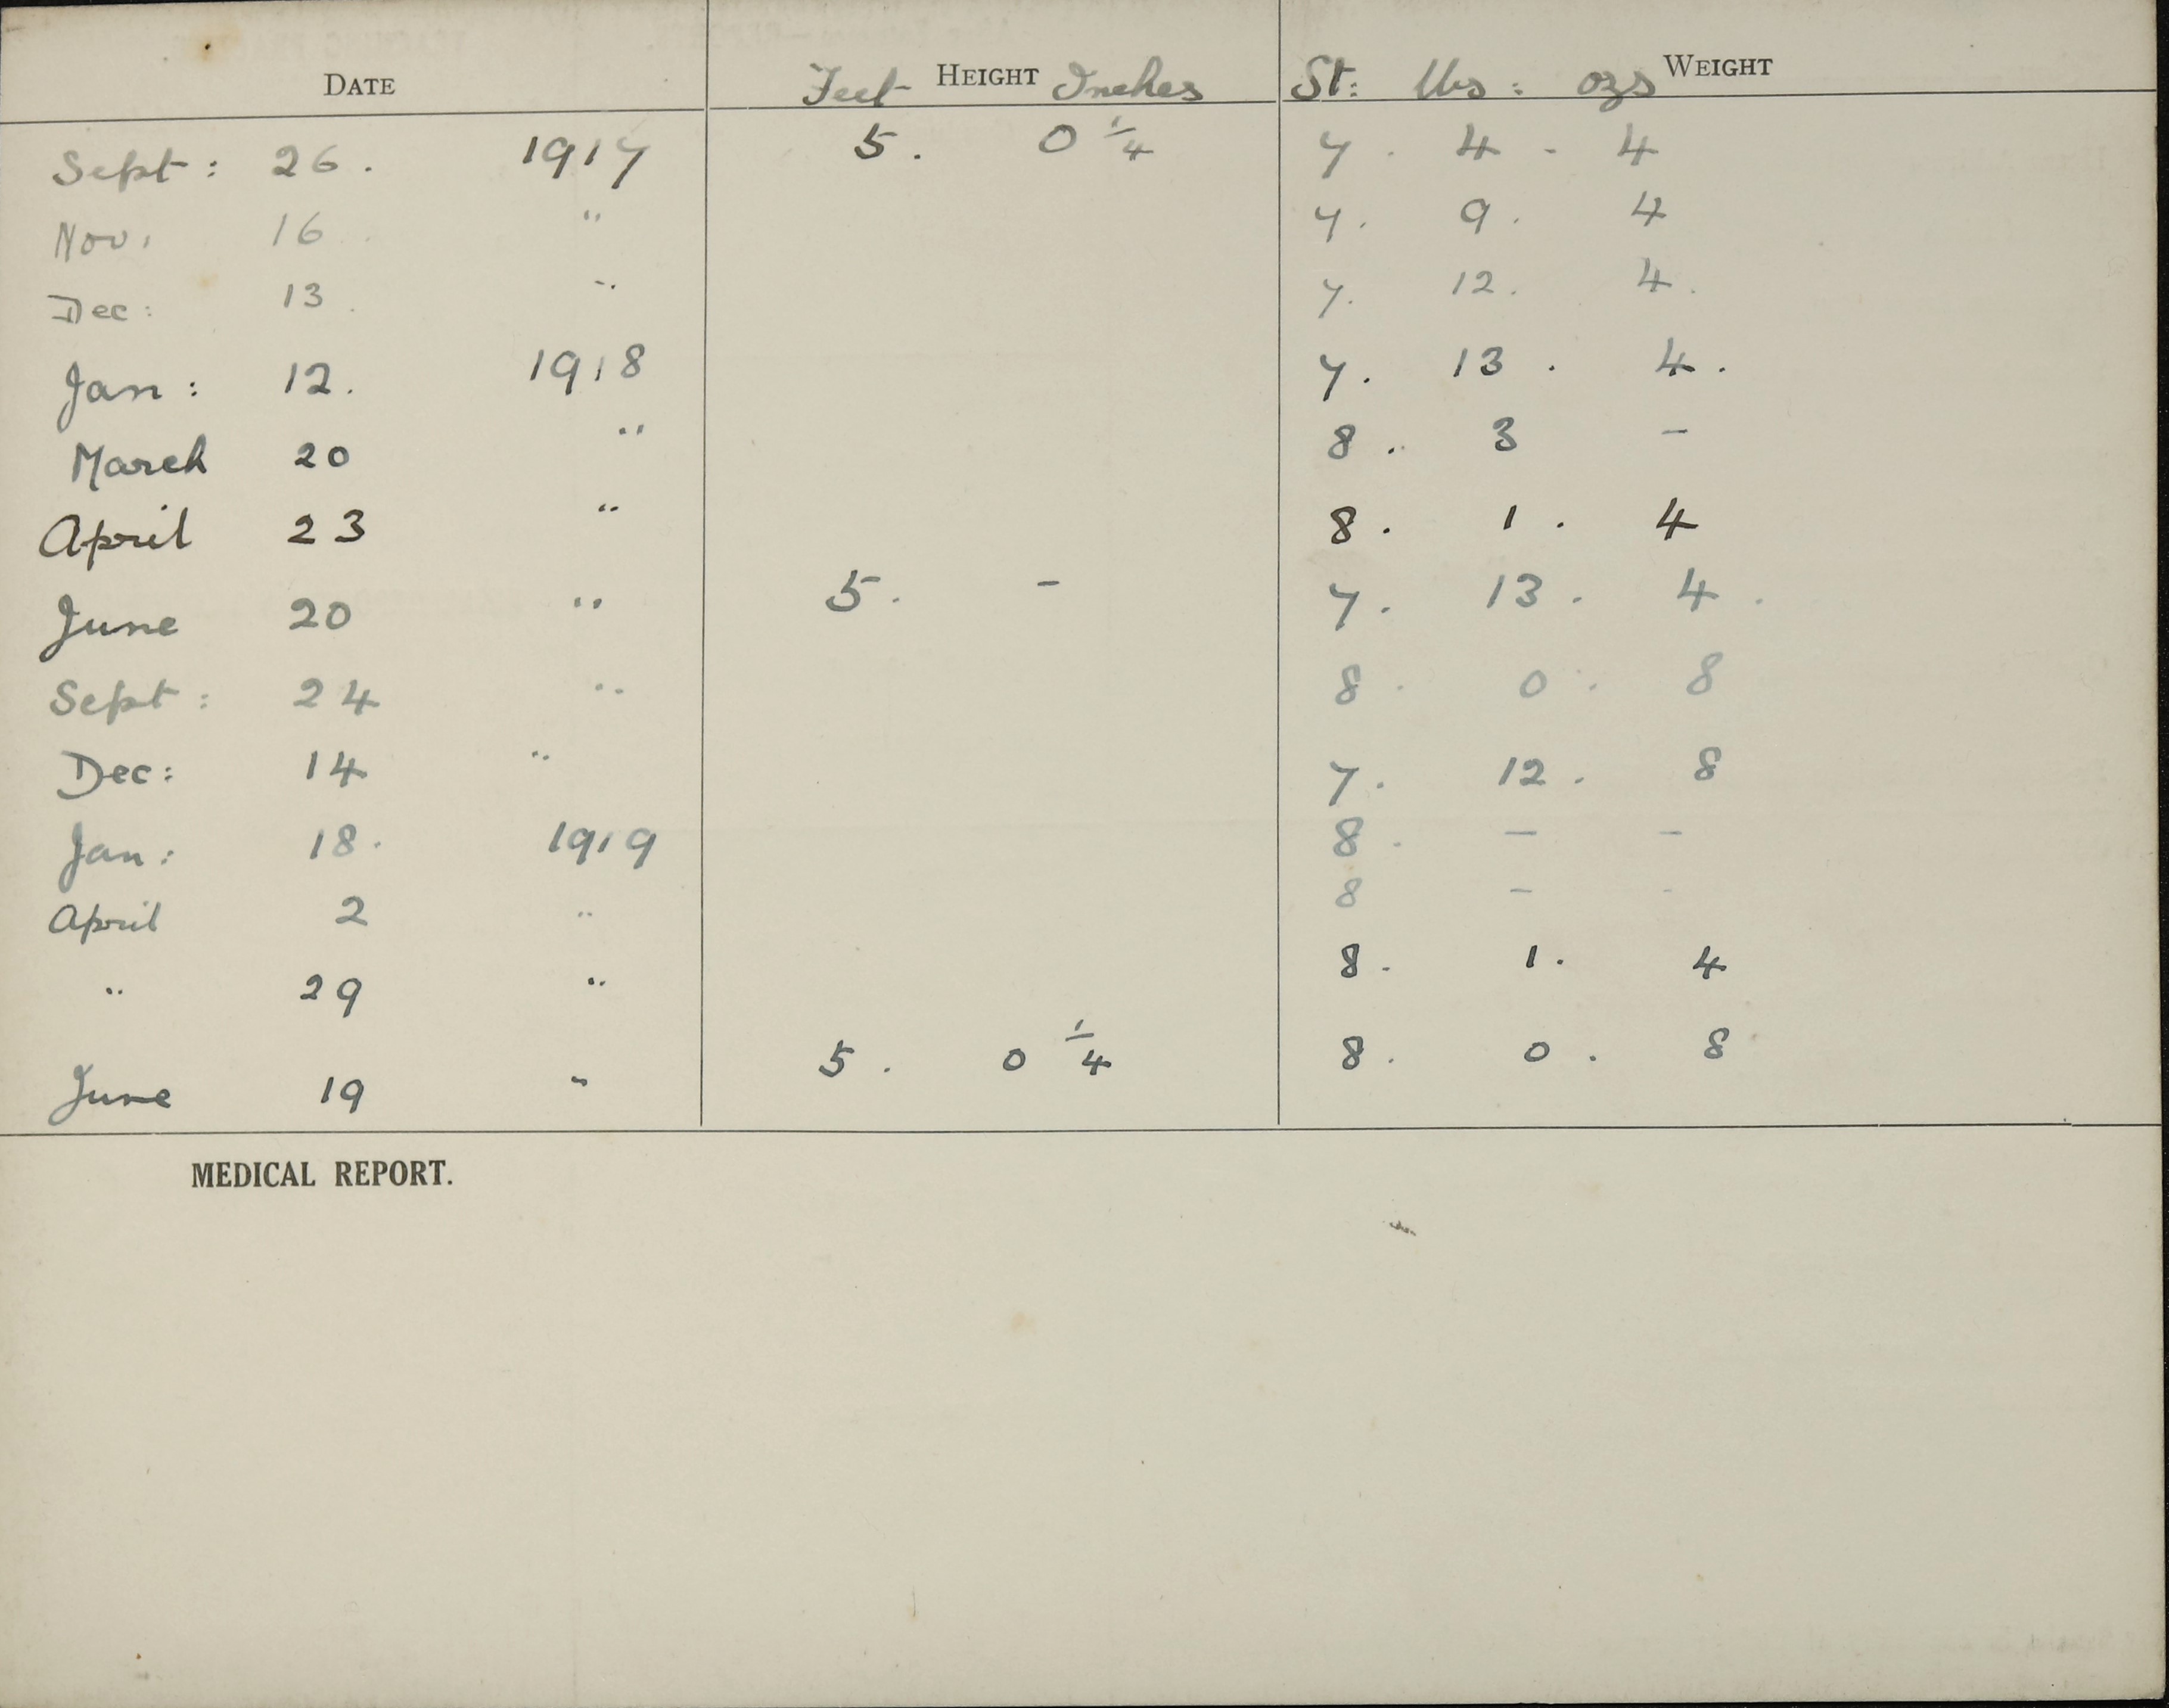 DATE Feet HEIGHT Inches St: lbs: ozs WEIGHT
Sept: 26. 1917 5. 0 1/4 7. 4. 4
Nov: 16. " 7. 9. 4
Dec: 13. " 7. 12. 4.
Jan: 12. 1918 7. 13. 4.
March 20 " 8. 3 -
April 23 " 8. 1. 4
June 20 " 5. - 7. 13. 4.
Sept: 24 " 8. 0. 8
Dec: 14 " 7. 12. 8
Jan: 18. 1919 8. - -
April 2 " 8 - -
" 29 " 8. 1. 4
June 19 " 5. 0 1/4 8. 0. 8
MEDICAL REPORT.